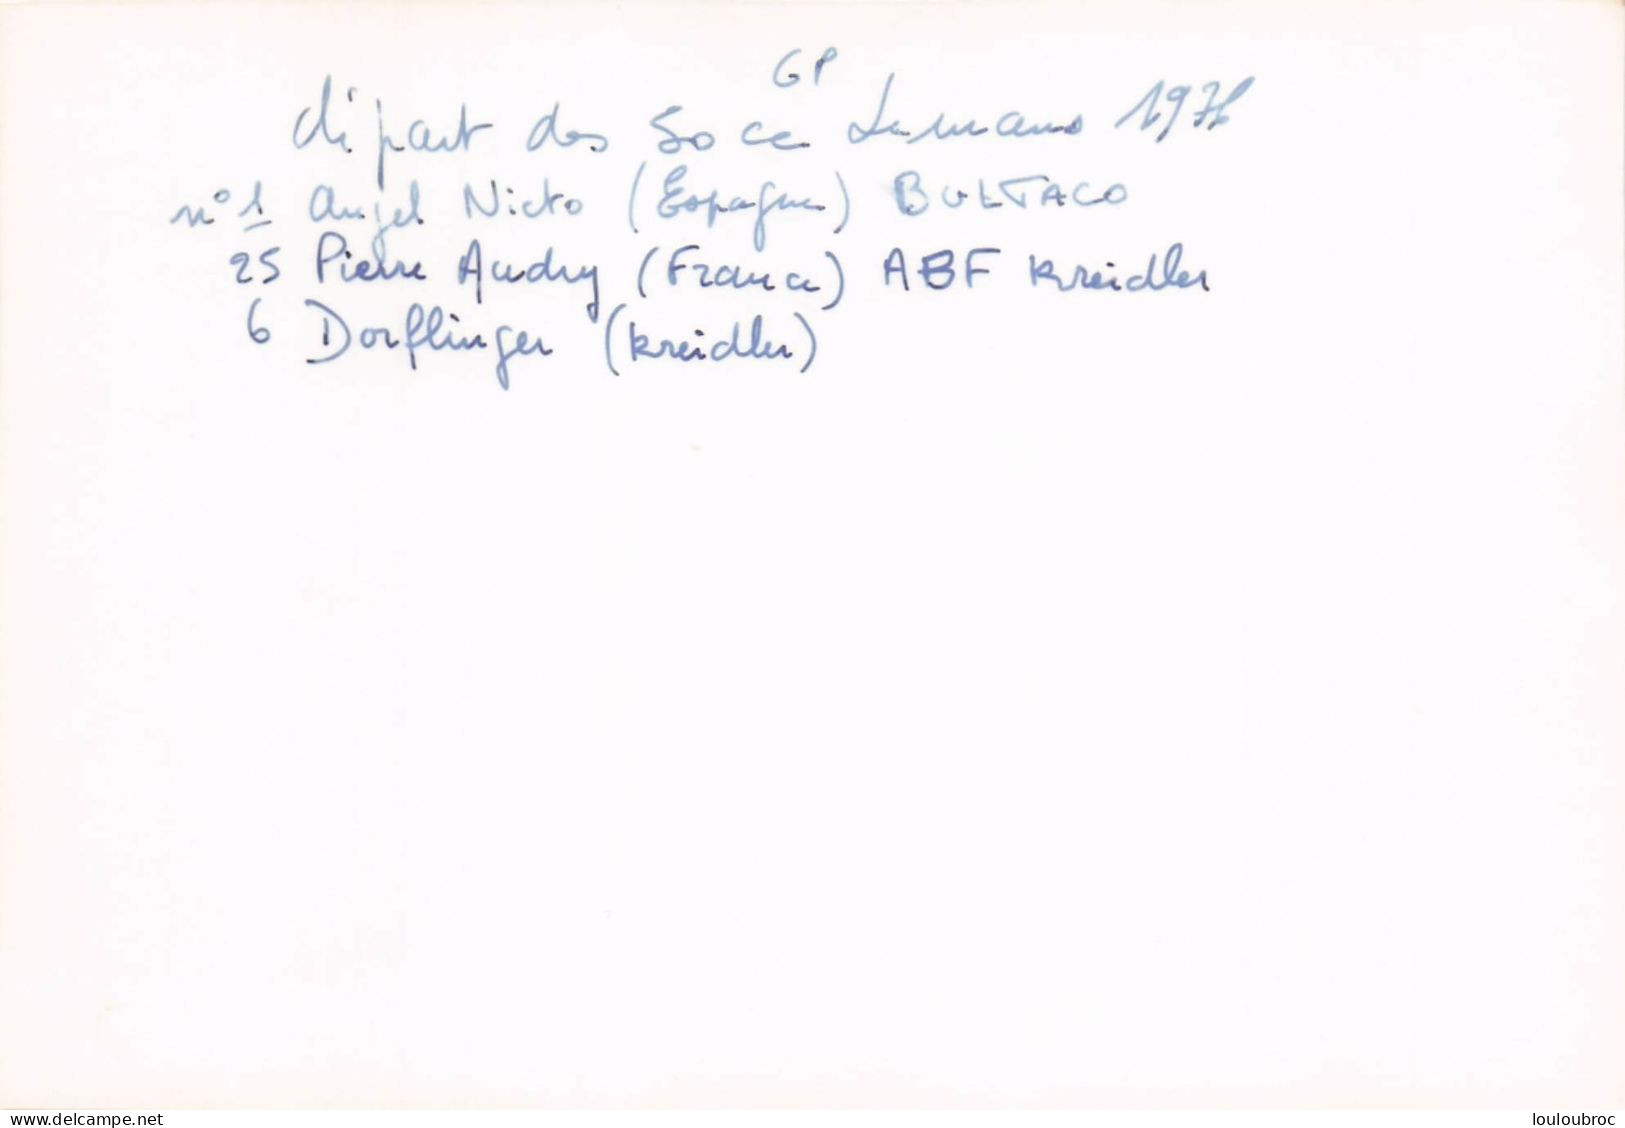 GP
départ des 50 cc Le mans 1976
n° 1 Angel Nieto (Espagne) BULTACO
25 Pierre Audry (France) ABF Kreidler
6 Dorflinger (Kreidler)
delcampe.net
louloubroc